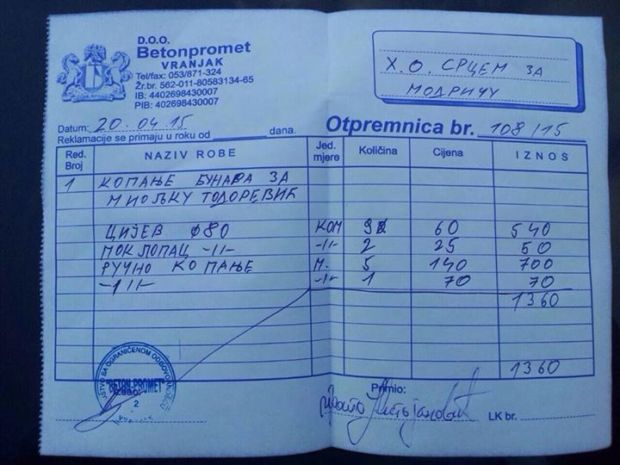 D.O.O.
Betonpromet
VRANJAK
Tel/fax: 053/871-324
Žr.br. 562-011-80583134-65
IB: 4402698430007
PIB: 402698430007
Х.О. СРЦЕМ ЗА
МОДРИЧУ
Datum: 20.04.15
Otpremnica br. 108/15
Reklamacije se primaju u roku od dana.
Red. Broj NAZIV ROBE Jed. mjere Količina Cijena IZNOS
1 КОПАЊЕ БУНАРА ЗА
МИОЉКУ ТОДОРЕВИЋ
ЦИЈЕВ Ø80 КОМ 9 60 540
ПОКЛОПАЦ -II- -II- 2 25 50
РУЧНО КОПАЊЕ М. 5 140 700
-II- -II- 1 70 70
1360
1360
"BETON-PROMET"
2
Izdao:
Primio:
LK br.